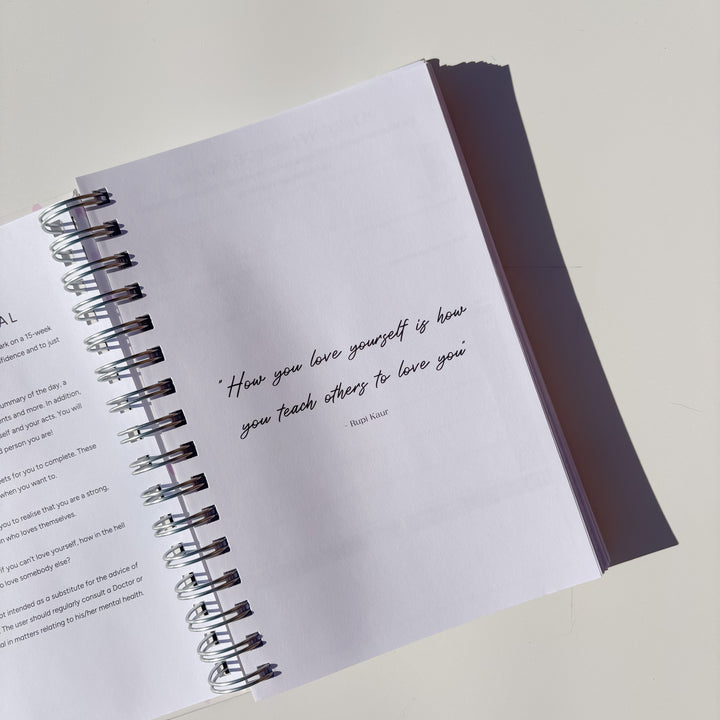 AL
ark on a 15-week
fidence and to just
ummary of the day, a
ents and more. In addition,
self and your acts. You will
d person you are!
ets for you to complete. These
when you want to.
you to realise that you are a strong,
n who loves themselves.
if you can't love yourself, how in the hell
o love somebody else?
ot intended as a substitute for the advice of
. The user should regularly consult a Doctor or
al in matters relating to his/her mental health.
"How you love yourself is how
you teach others to love you"
- Rupi Kaur